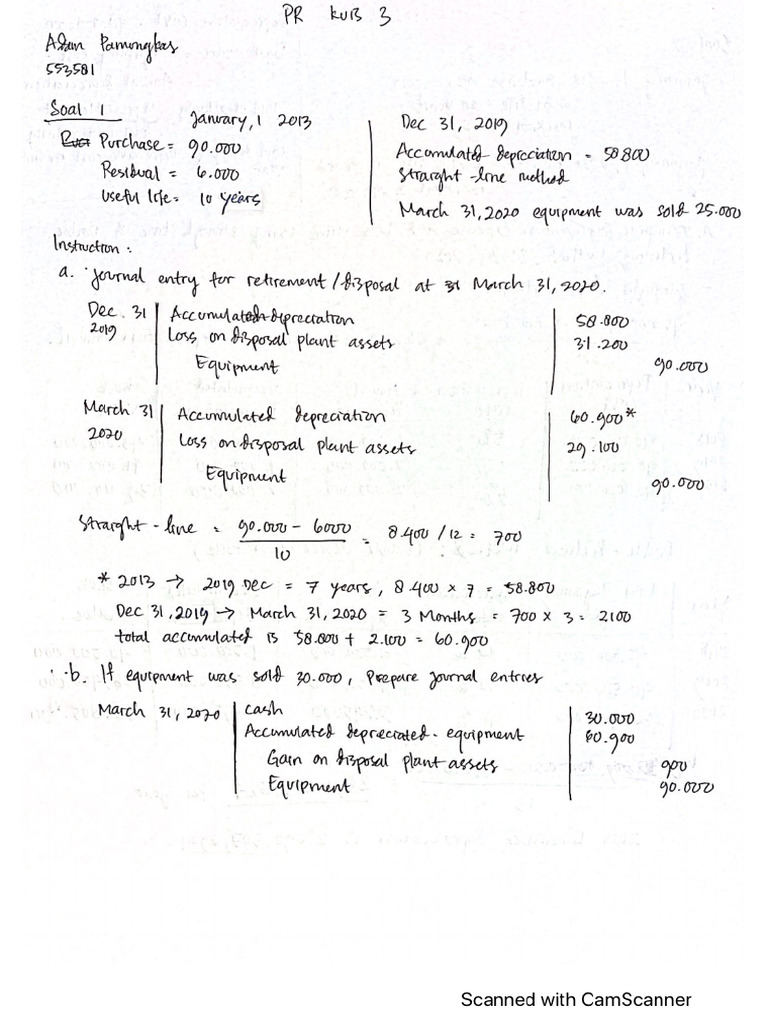 PR KUIS 3
Adam Pamungkas
553581
Soal 1
January, 1 2013
Purchase = 90.000
Residual = 6.000
Useful life = 10 years
Dec 31, 2019
Accumulated depreciation = 58800
Straight-line method
March 31, 2020 equipment was sold 25.000
Instruction :
a. Journal entry for retirement / disposal at 31 March 31, 2020.
Dec. 31 Accumulated depreciation 58.800
2019 Loss on disposal plant assets 31.200
Equipment 90.000
March 31 Accumulated depreciation 60.900*
2020 Loss on disposal plant assets 29.100
Equipment 90.000
Straight-line = 90.000 - 6000 / 10 = 8.400 / 12 = 700
* 2013 → 2019 Dec = 7 years, 8.400 x 7 = 58.800
Dec 31, 2019 → March 31, 2020 = 3 Months = 700 x 3 = 2100
total accumulated is 58.800 + 2.100 = 60.900
b. If equipment was sold 30.000, Prepare journal entries
March 31, 2020 cash 30.000
Accumulated depreciated - equipment 60.900
Gain on disposal plant assets 900
Equipment 90.000
Scanned with CamScanner